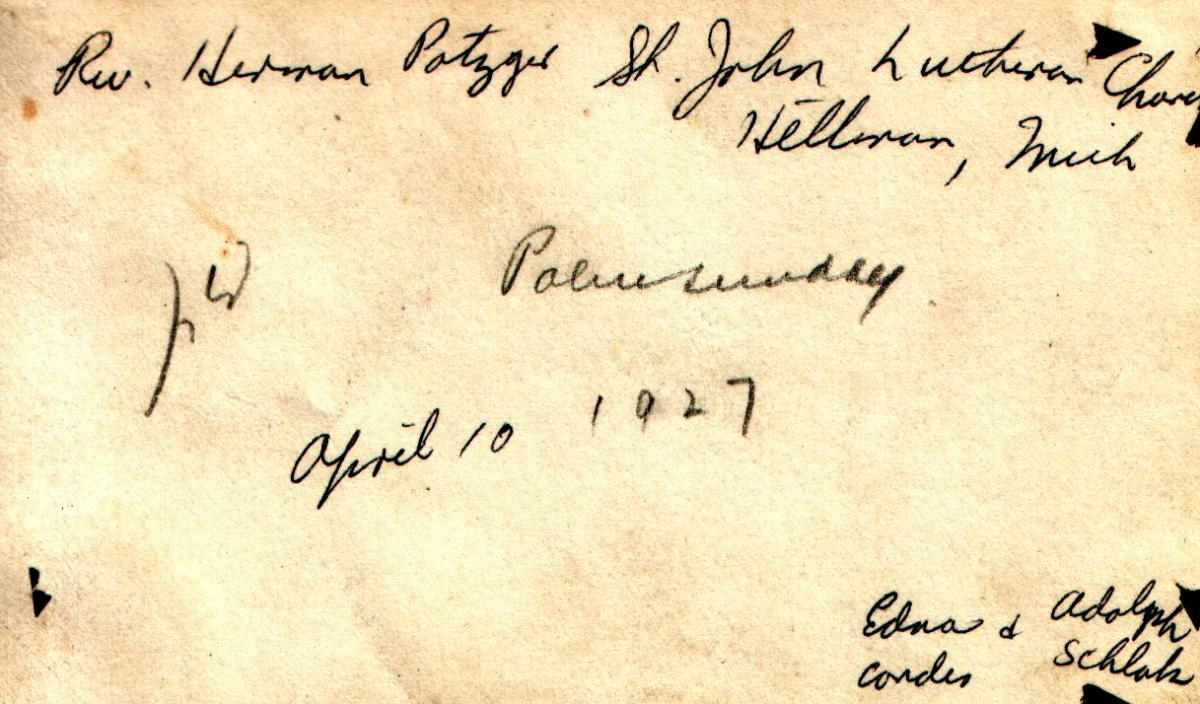 Rev. Herman Potzger St. John Lutheran
Hillman, Mich
Palmsunday
April 10 1927
Edna & Adolph
Cordes Schlak